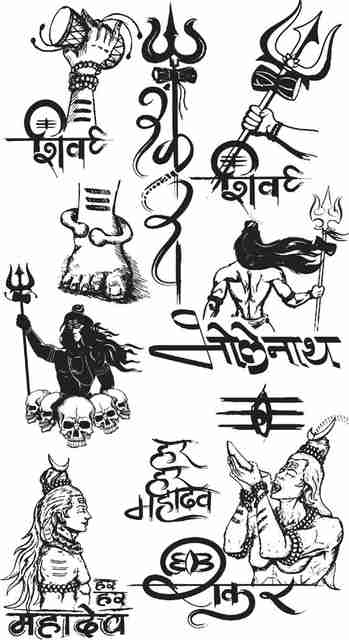 शिव
शिव
भोलेनाथ
हर
हर
महादेव
शंकर
हर
हर
महादेव